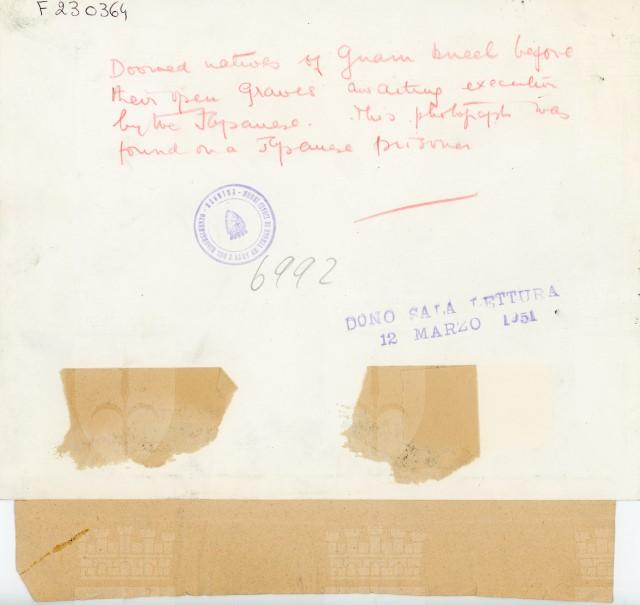 F 230364
Doomed natives of Guam kneel before
their open graves awaiting execution
by the Japanese. This photograph was
found on a Japanese prisoner
6992
DONO SALA LETTURA
12 MARZO 1951